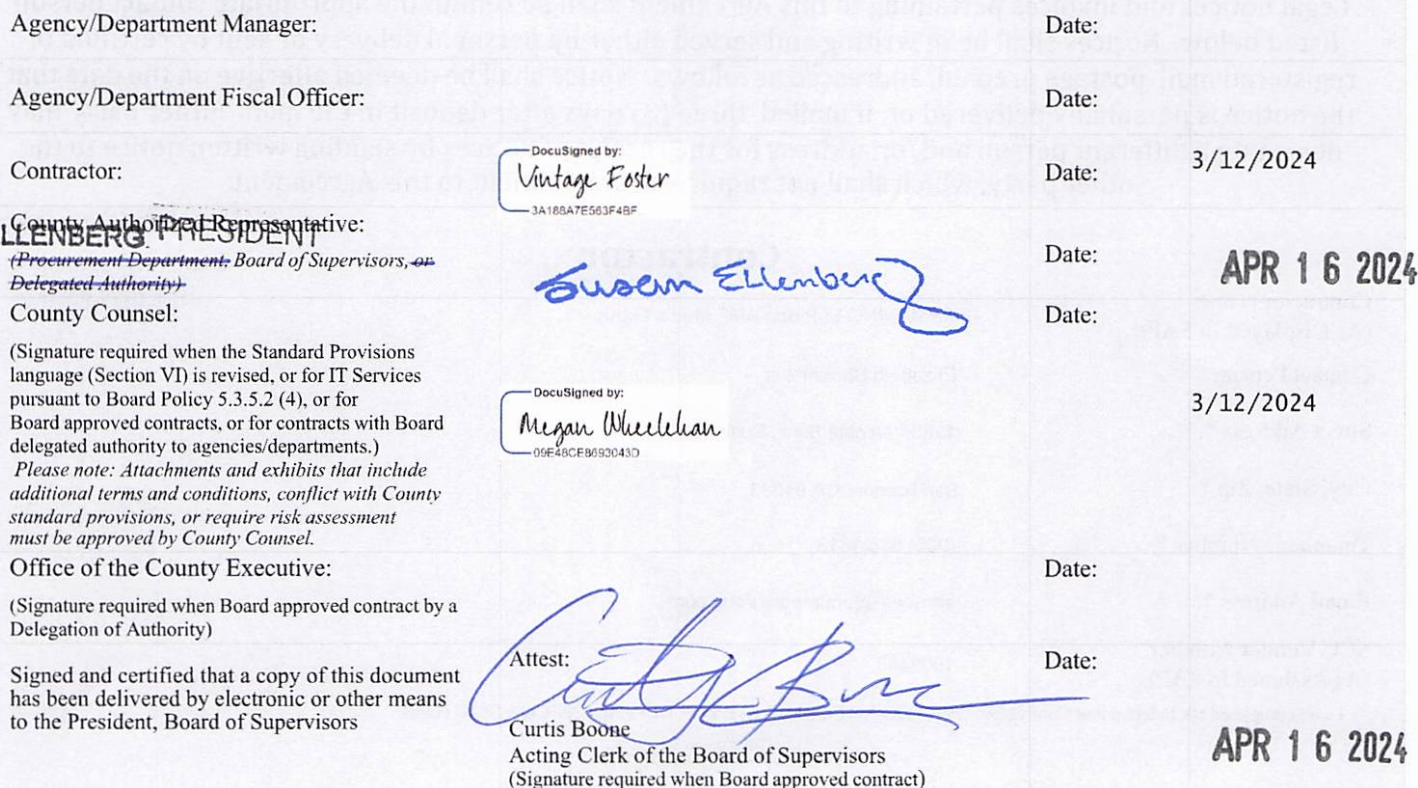 Legal notices and invoices pertaining to this Agreement shall be
Agency/Department Manager: Date:
Agency/Department Fiscal Officer: Date:
Contractor: DocuSigned by: Date: 3/12/2024
Vintage Foster
3A188A7E563F4BF
County Authorized Representative: Date: APR 16 2024
LLENBERG PRESIDENT
(Procurement Department, Board of Supervisors, or
Delegated Authority)
Susan Ellenberg
County Counsel: Date: 3/12/2024
(Signature required when the Standard Provisions
language (Section VI) is revised, or for IT Services
pursuant to Board Policy 5.3.5.2 (4), or for
Board approved contracts, or for contracts with Board
delegated authority to agencies/departments.)
Please note: Attachments and exhibits that include
additional terms and conditions, conflict with County
standard provisions, or require risk assessment
must be approved by County Counsel.
DocuSigned by:
Megan Wheelehan
09E48CE8693043D
Office of the County Executive: Date:
(Signature required when Board approved contract by a
Delegation of Authority)
Signed and certified that a copy of this document
has been delivered by electronic or other means
to the President, Board of Supervisors
Attest: Date: APR 16 2024
Curtis Boone
Acting Clerk of the Board of Supervisors
(Signature required when Board approved contract)